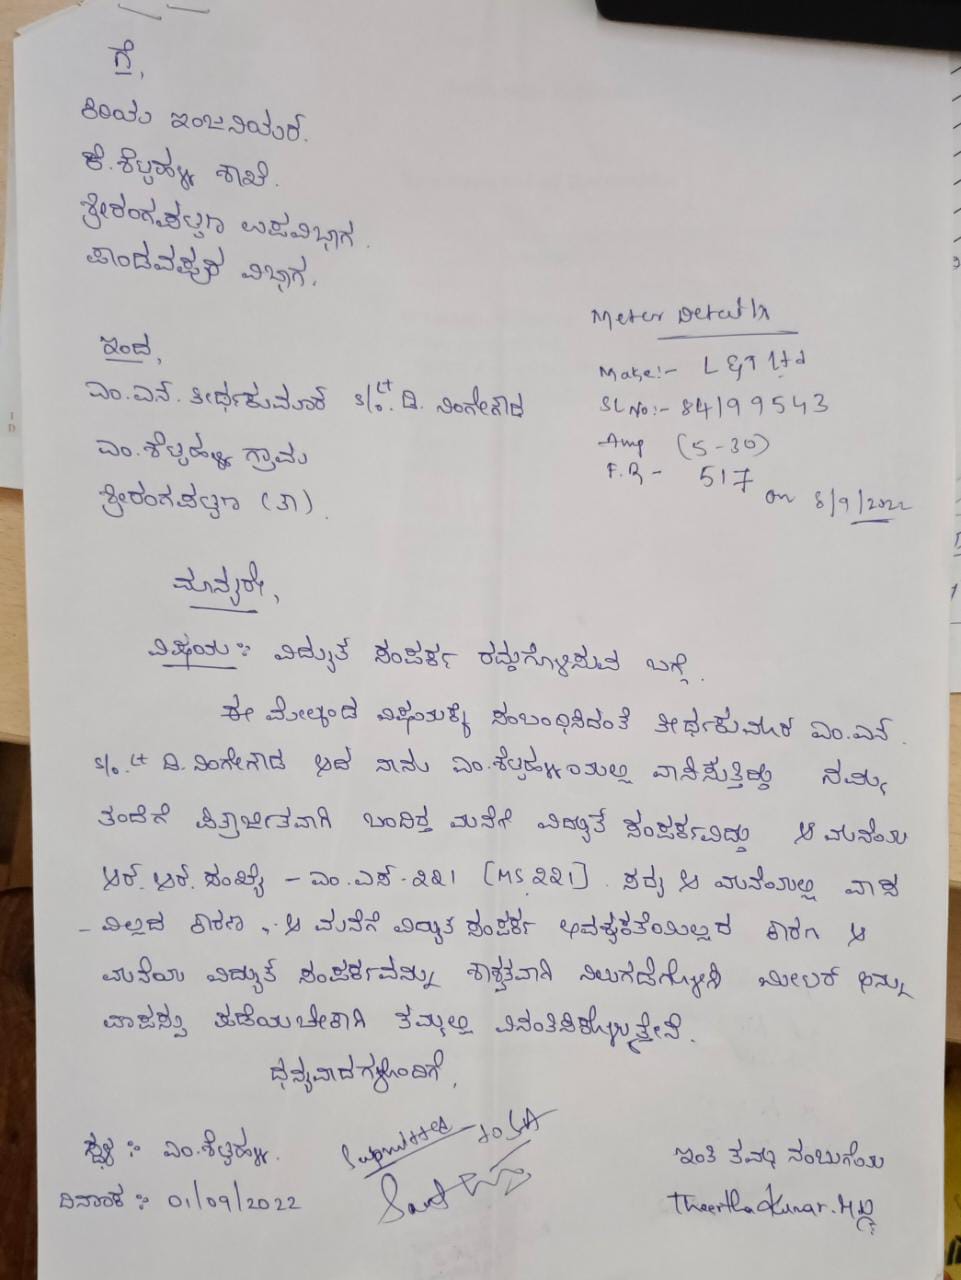 ಗೆ,
ಕಿರಿಯ ಇಂಜನಿಯರ್.
ಕೆ.ಶೆಟ್ಟಹಳ್ಳಿ ಶಾಖೆ.
ಶ್ರೀರಂಗಪಟ್ಟಣ ಉಪವಿಭಾಗ.
ಪಾಂಡವಪುರ ವಿಭಾಗ.
Meter Details
Make:- L&T Ltd
SL No:- 84199543
Amp (5-30)
F.R - 517 on 8/9/2022
ಇಂದ,
ಎಂ.ಎನ್. ತೀರ್ಥಕುಮಾರ್ s/o. Lt ಡಿ. ನಿಂಗೇಗೌಡ
ಎಂ.ಶೆಟ್ಟಹಳ್ಳಿ ಗ್ರಾಮ
ಶ್ರೀರಂಗಪಟ್ಟಣ (ತಾ).
ಮಾನ್ಯರೇ,
ವಿಷಯ: ವಿದ್ಯುತ್ ಸಂಪರ್ಕ ರದ್ದುಗೊಳಿಸುವ ಬಗ್ಗೆ.
ಈ ಮೇಲ್ಕಂಡ ವಿಷಯಕ್ಕೆ ಸಂಬಂಧಿಸಿದಂತೆ ತೀರ್ಥಕುಮಾರ ಎಂ.ಎನ್.
s/o. Lt ಡಿ.ನಿಂಗೇಗೌಡ ಆದ ನಾನು ಎಂ.ಶೆಟ್ಟಹಳ್ಳಿಯಲ್ಲಿ ವಾಸಿಸುತ್ತಿದ್ದು ನಮ್ಮ
ತಂದೆಗೆ ಪಿತ್ರಾರ್ಜಿತವಾಗಿ ಬಂದಿದ್ದ ಮನೆಗೆ ವಿದ್ಯುತ್ ಸಂಪರ್ಕವಿದ್ದು ಆ ಮನೆಯ
ಆರ್. ಆರ್. ಸಂಖ್ಯೆ - ಎಂ.ಎಸ್-೨೨೧ [MS ೨೨೧]. ಸದ್ಯ ಆ ಮನೆಯಲ್ಲಿ ವಾಸ
- ವಿಲ್ಲದ ಕಾರಣ, ಆ ಮನೆಗೆ ವಿದ್ಯುತ್ ಸಂಪರ್ಕ ಅವಶ್ಯಕತೆಯಿಲ್ಲದ ಕಾರಣ ಆ
ಮನೆಯ ವಿದ್ಯುತ್ ಸಂಪರ್ಕವನ್ನು ಶಾಶ್ವತವಾಗಿ ನಿಲುಗಡೆಗೊಳಿಸಿ ಮೀಟರ್ ಅನ್ನು
ವಾಪಸ್ಸು ಪಡೆಯಬೇಕಾಗಿ ತಮ್ಮಲ್ಲಿ ವಿನಂತಿಸಿಕೊಳ್ಳುತ್ತೇನೆ.
ಧನ್ಯವಾದಗಳೊಂದಿಗೆ,
ಸ್ಥಳ : ಎಂ.ಶೆಟ್ಟಹಳ್ಳಿ.
ದಿನಾಂಕ : 01/09/2022
Submitted to
ಇಂತಿ ತಮ್ಮ ನಂಬುಗೆಯ
Theertha Kumar. M.N